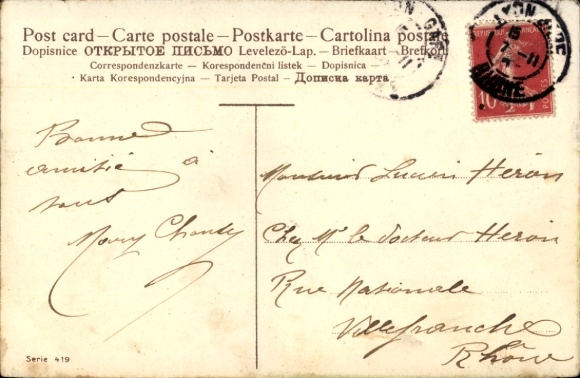 Post card – Carte postale – Postkarte – Cartolina postale
Dopisnice ОТКРЫТОЕ ПИСЬМО Levelezö-Lap. – Briefkaart – Brefkort
Correspondenzkarte – Korespondenčni listek – Dopisnica –
· Karta Korespondencyjna – Tarjeta Postal – Дописна карта.
RHONE
10
POSTES
Bonne
amitié à
tous
Monsieur Lucien Heron
Chez Mr le docteur Heron
Rue Nationale
Villefranche
Rhône
Serie 419